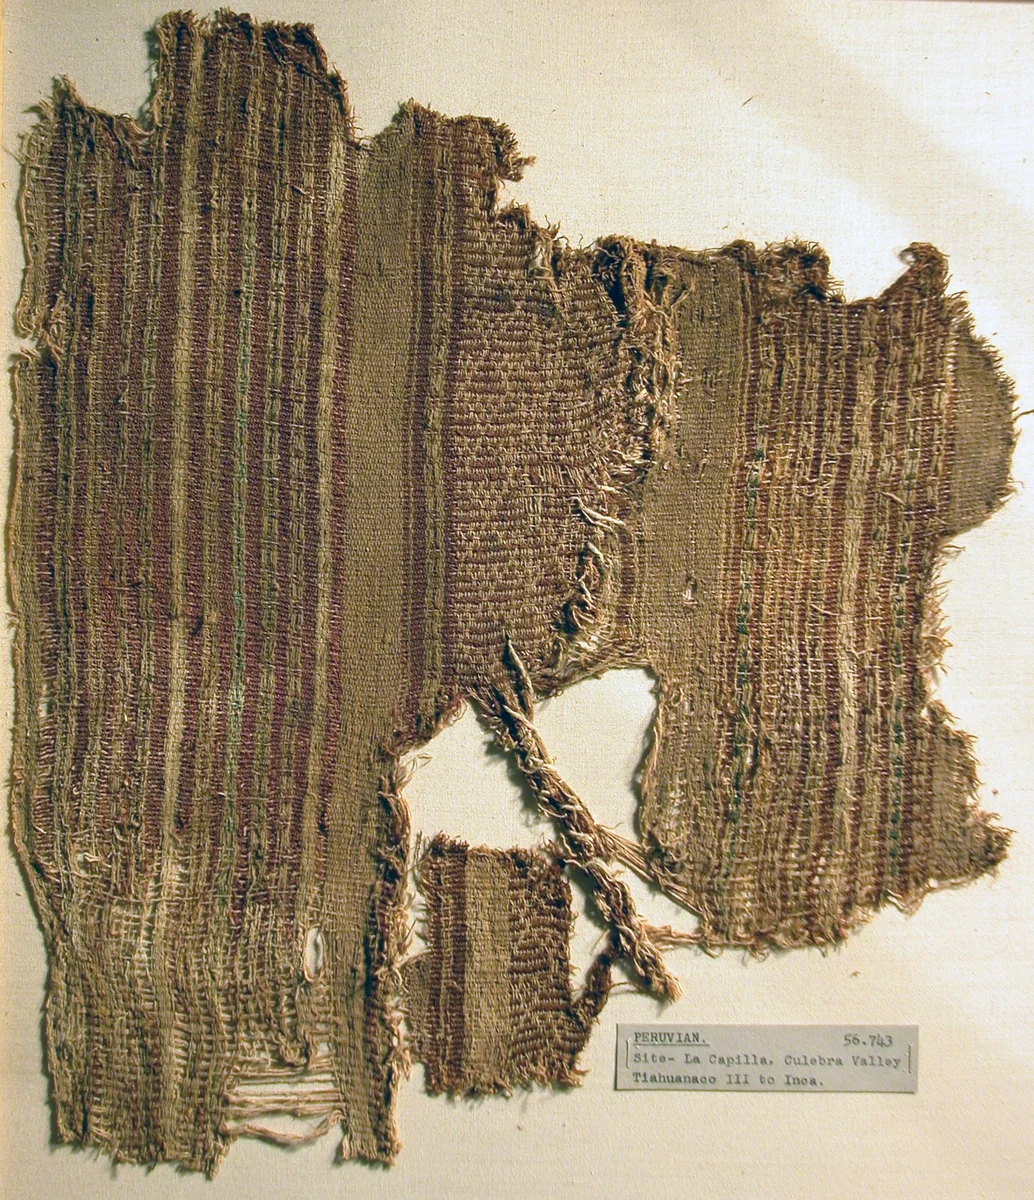 PERUVIAN. 56.743
Site- La Capilla, Culebra Valley
Tiahuanaco III to Inca.